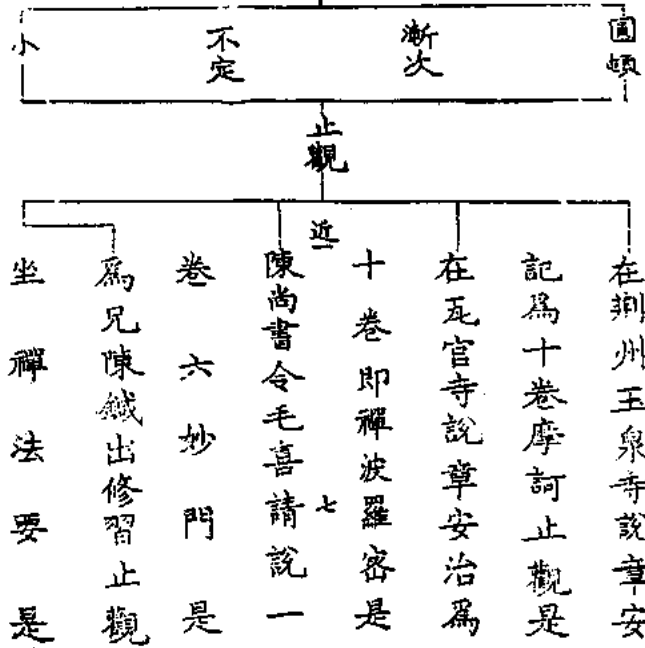 圓頓
漸次
不定
小
止觀
在荆州玉泉寺說章安
記爲十卷摩訶止觀是
在瓦官寺說章安治爲
十卷即禪波羅密是
近一
陳尚書令毛喜請說一
七
卷六妙門是
爲兄陳鍼出修習止觀
坐禪法要是